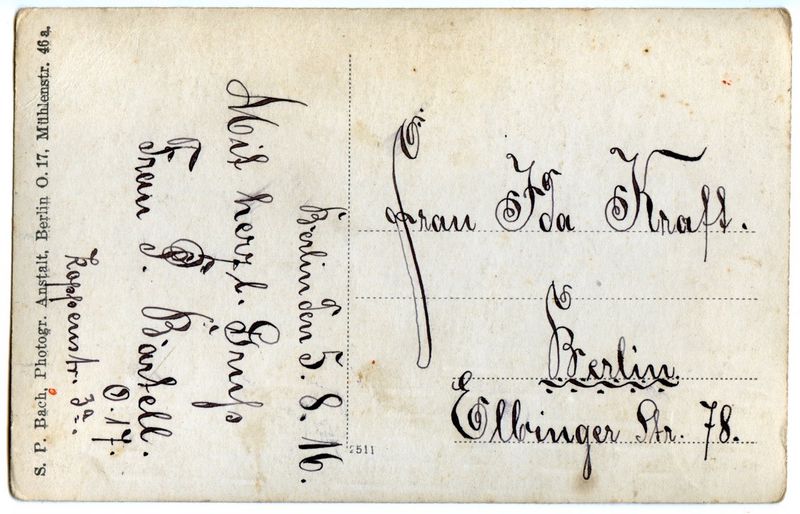 S. P. Bach, Photogr. Anstalt, Berlin O. 17, Mühlenstr. 46a.
Berlin den 5. 8. 16.
Mit herzl. Gruß
Frau P. Bartell.
O. 17.
Koppenstr. 3a.
Frau Ida Kraft.
Berlin
Elbinger Str. 78.
2511